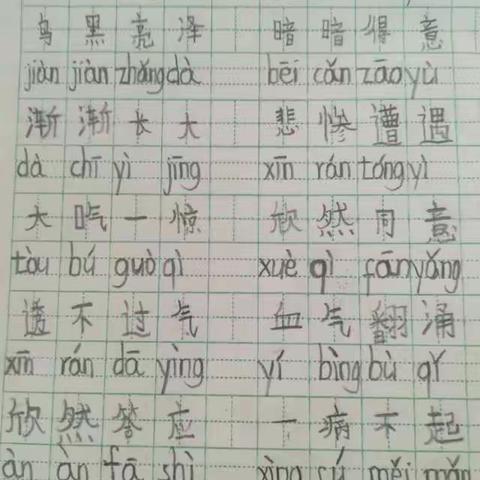 乌黑亮泽 暗暗得意
jiàn jiàn zhǎng dà bēi cǎn zāo yù
渐渐长大 悲惨遭遇
dà chī yì jīng xīn rán tóng yì
大吃一惊 欣然同意
tòu bú guò qì xuè qì fānyǒng
透不过气 血气翻涌
xīn rán dā yìng yí bìng bù qǐ
欣然答应 一病不起
àn àn fā shì xìng sú měi mǎn